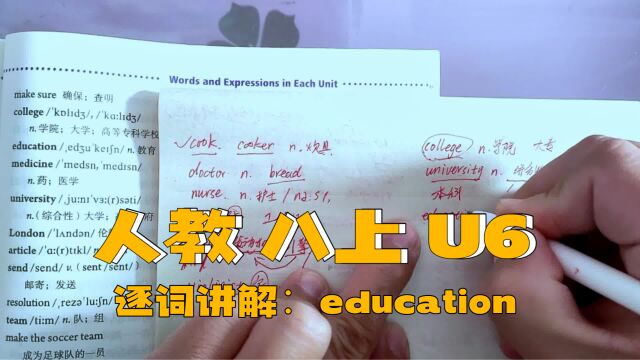 Words and Expressions in Each Unit
make sure 确保；查明
college /ˈkɒlɪdʒ/, /ˈkɑ:lɪdʒ/
n. 学院；大学；高等专科学校
education /ˌedʒuˈkeɪʃn/ n. 教育
medicine /ˈmedsn, ˈmedɪsn/
n. 药；医学
university /ˌju:nɪˈvɜ:(r)səti/
n. (综合性) 大学；
London /ˈlʌndən/
article /ˈɑ:(r)tɪkl/ n.
send /send/ v. (sent /sent/)
邮寄；发送
resolution /ˌrezəˈlu:ʃn/
team /ti:m/ n. 队；组
make the soccer team
成为足球队的一员
cook. cooker n. 炊具
doctor n. bread
nurse. n. 护士
college n. 学院 大专
university n.
本科
人教 八上 U6
逐词讲解：education